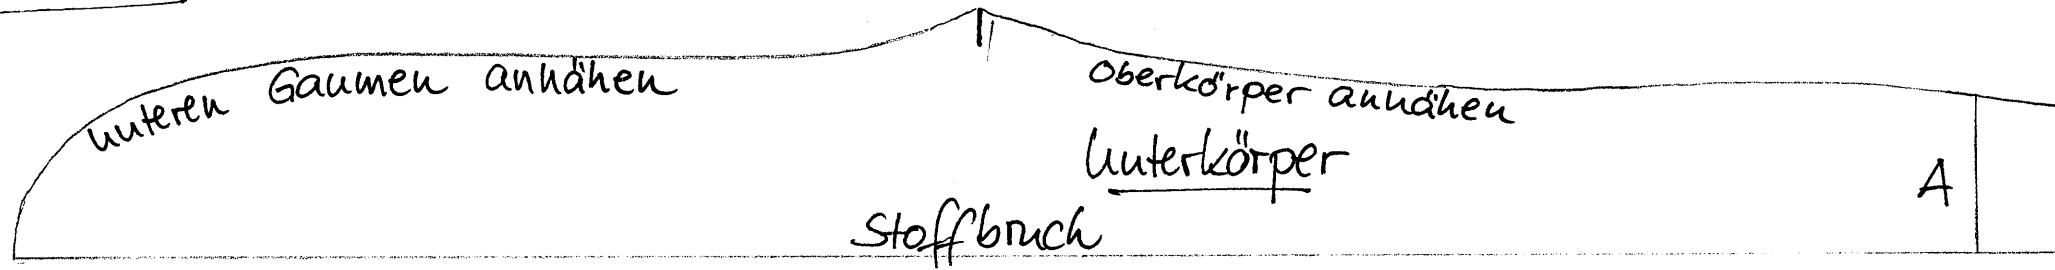 unteren Gaumen annähen
Oberkörper annähen
Unterkörper
A
Stoffbruch